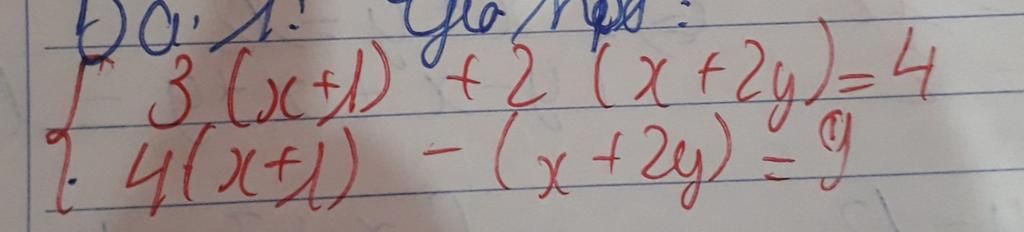 Bài 1: Giải hpt:
3(x+1) + 2(x+2y) = 4
4(x+1) - (x+2y) = 9